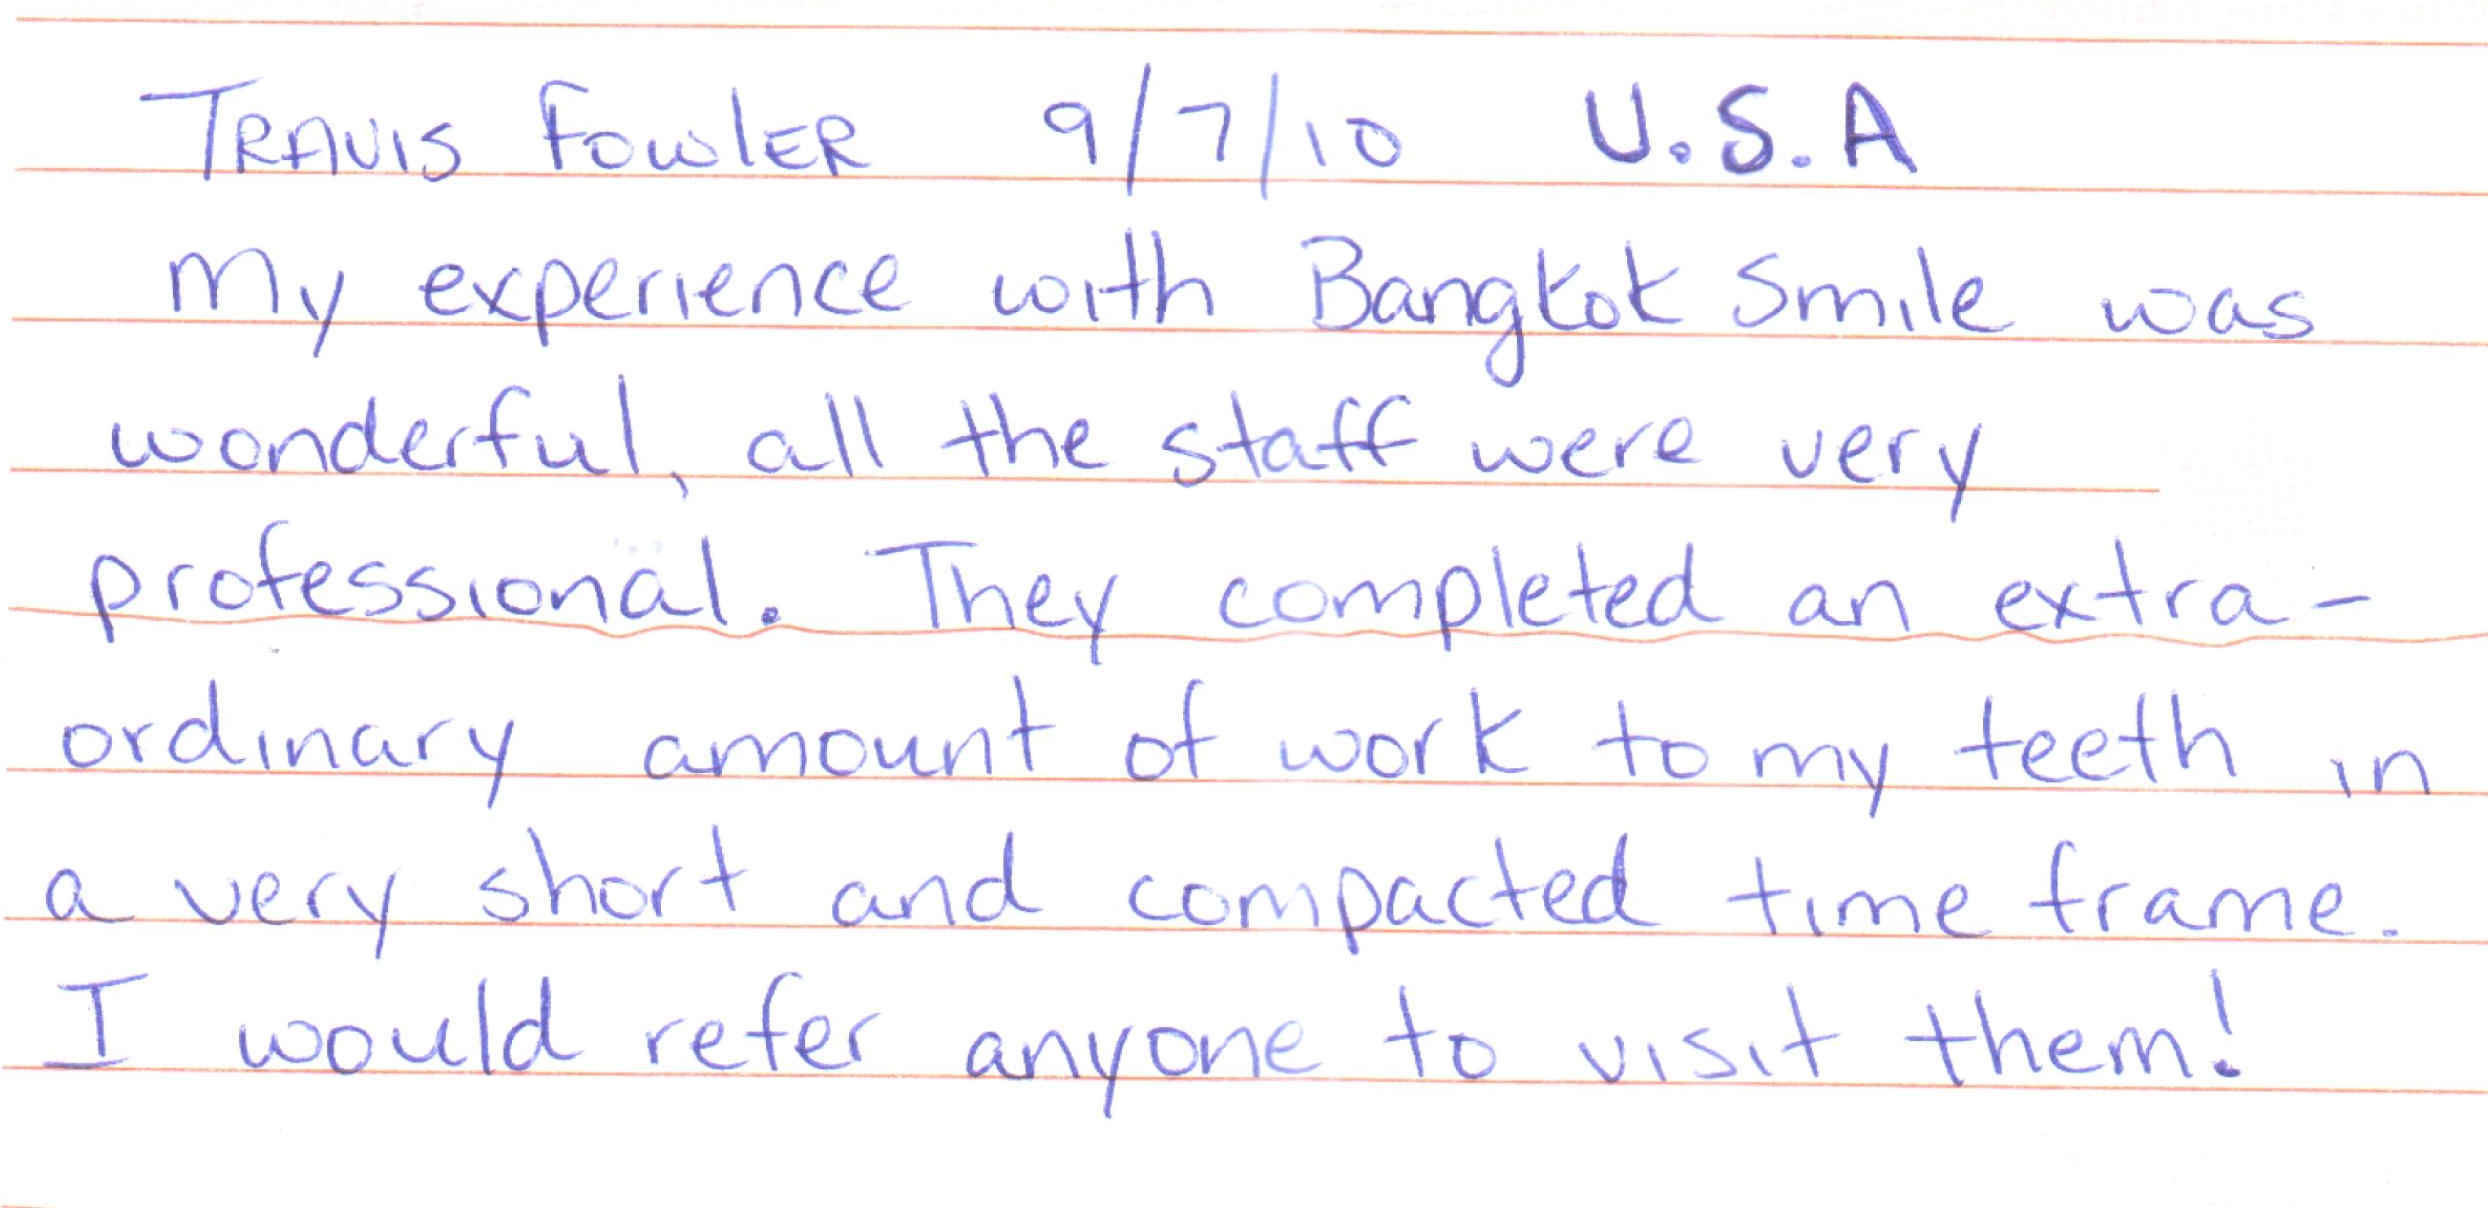 TRAVIS FOWLER 9/7/10 U.S.A
My experience with Bangkok Smile was
wonderful, all the staff were very
professional. They completed an extra-
ordinary amount of work to my teeth in
a very short and compacted time frame.
I would refer anyone to visit them!